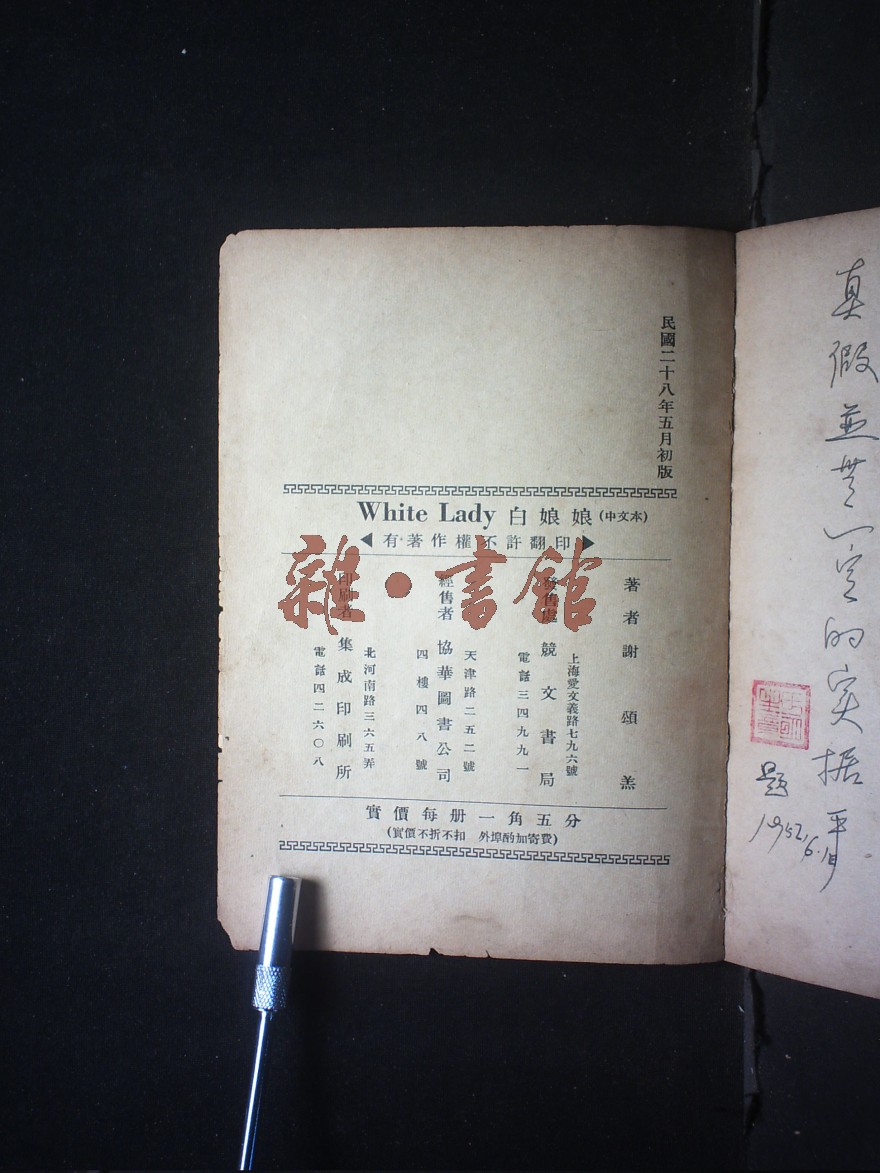 民國二十八年五月初版
White Lady 白娘娘(中文本)
有著作權不許翻印
著者謝頌羔
發售處競文書局
上海愛文義路七九六號
電話三四九九一
經售者協華圖書公司
天津路二五二號
四樓四八號
印刷者集成印刷所
北河南路三六五弄
電話四二六〇八
實價每册一角五分
(實價不折不扣 外埠酌加寄費)
雜·書館
真假並
一定的实据
題
1952.6.